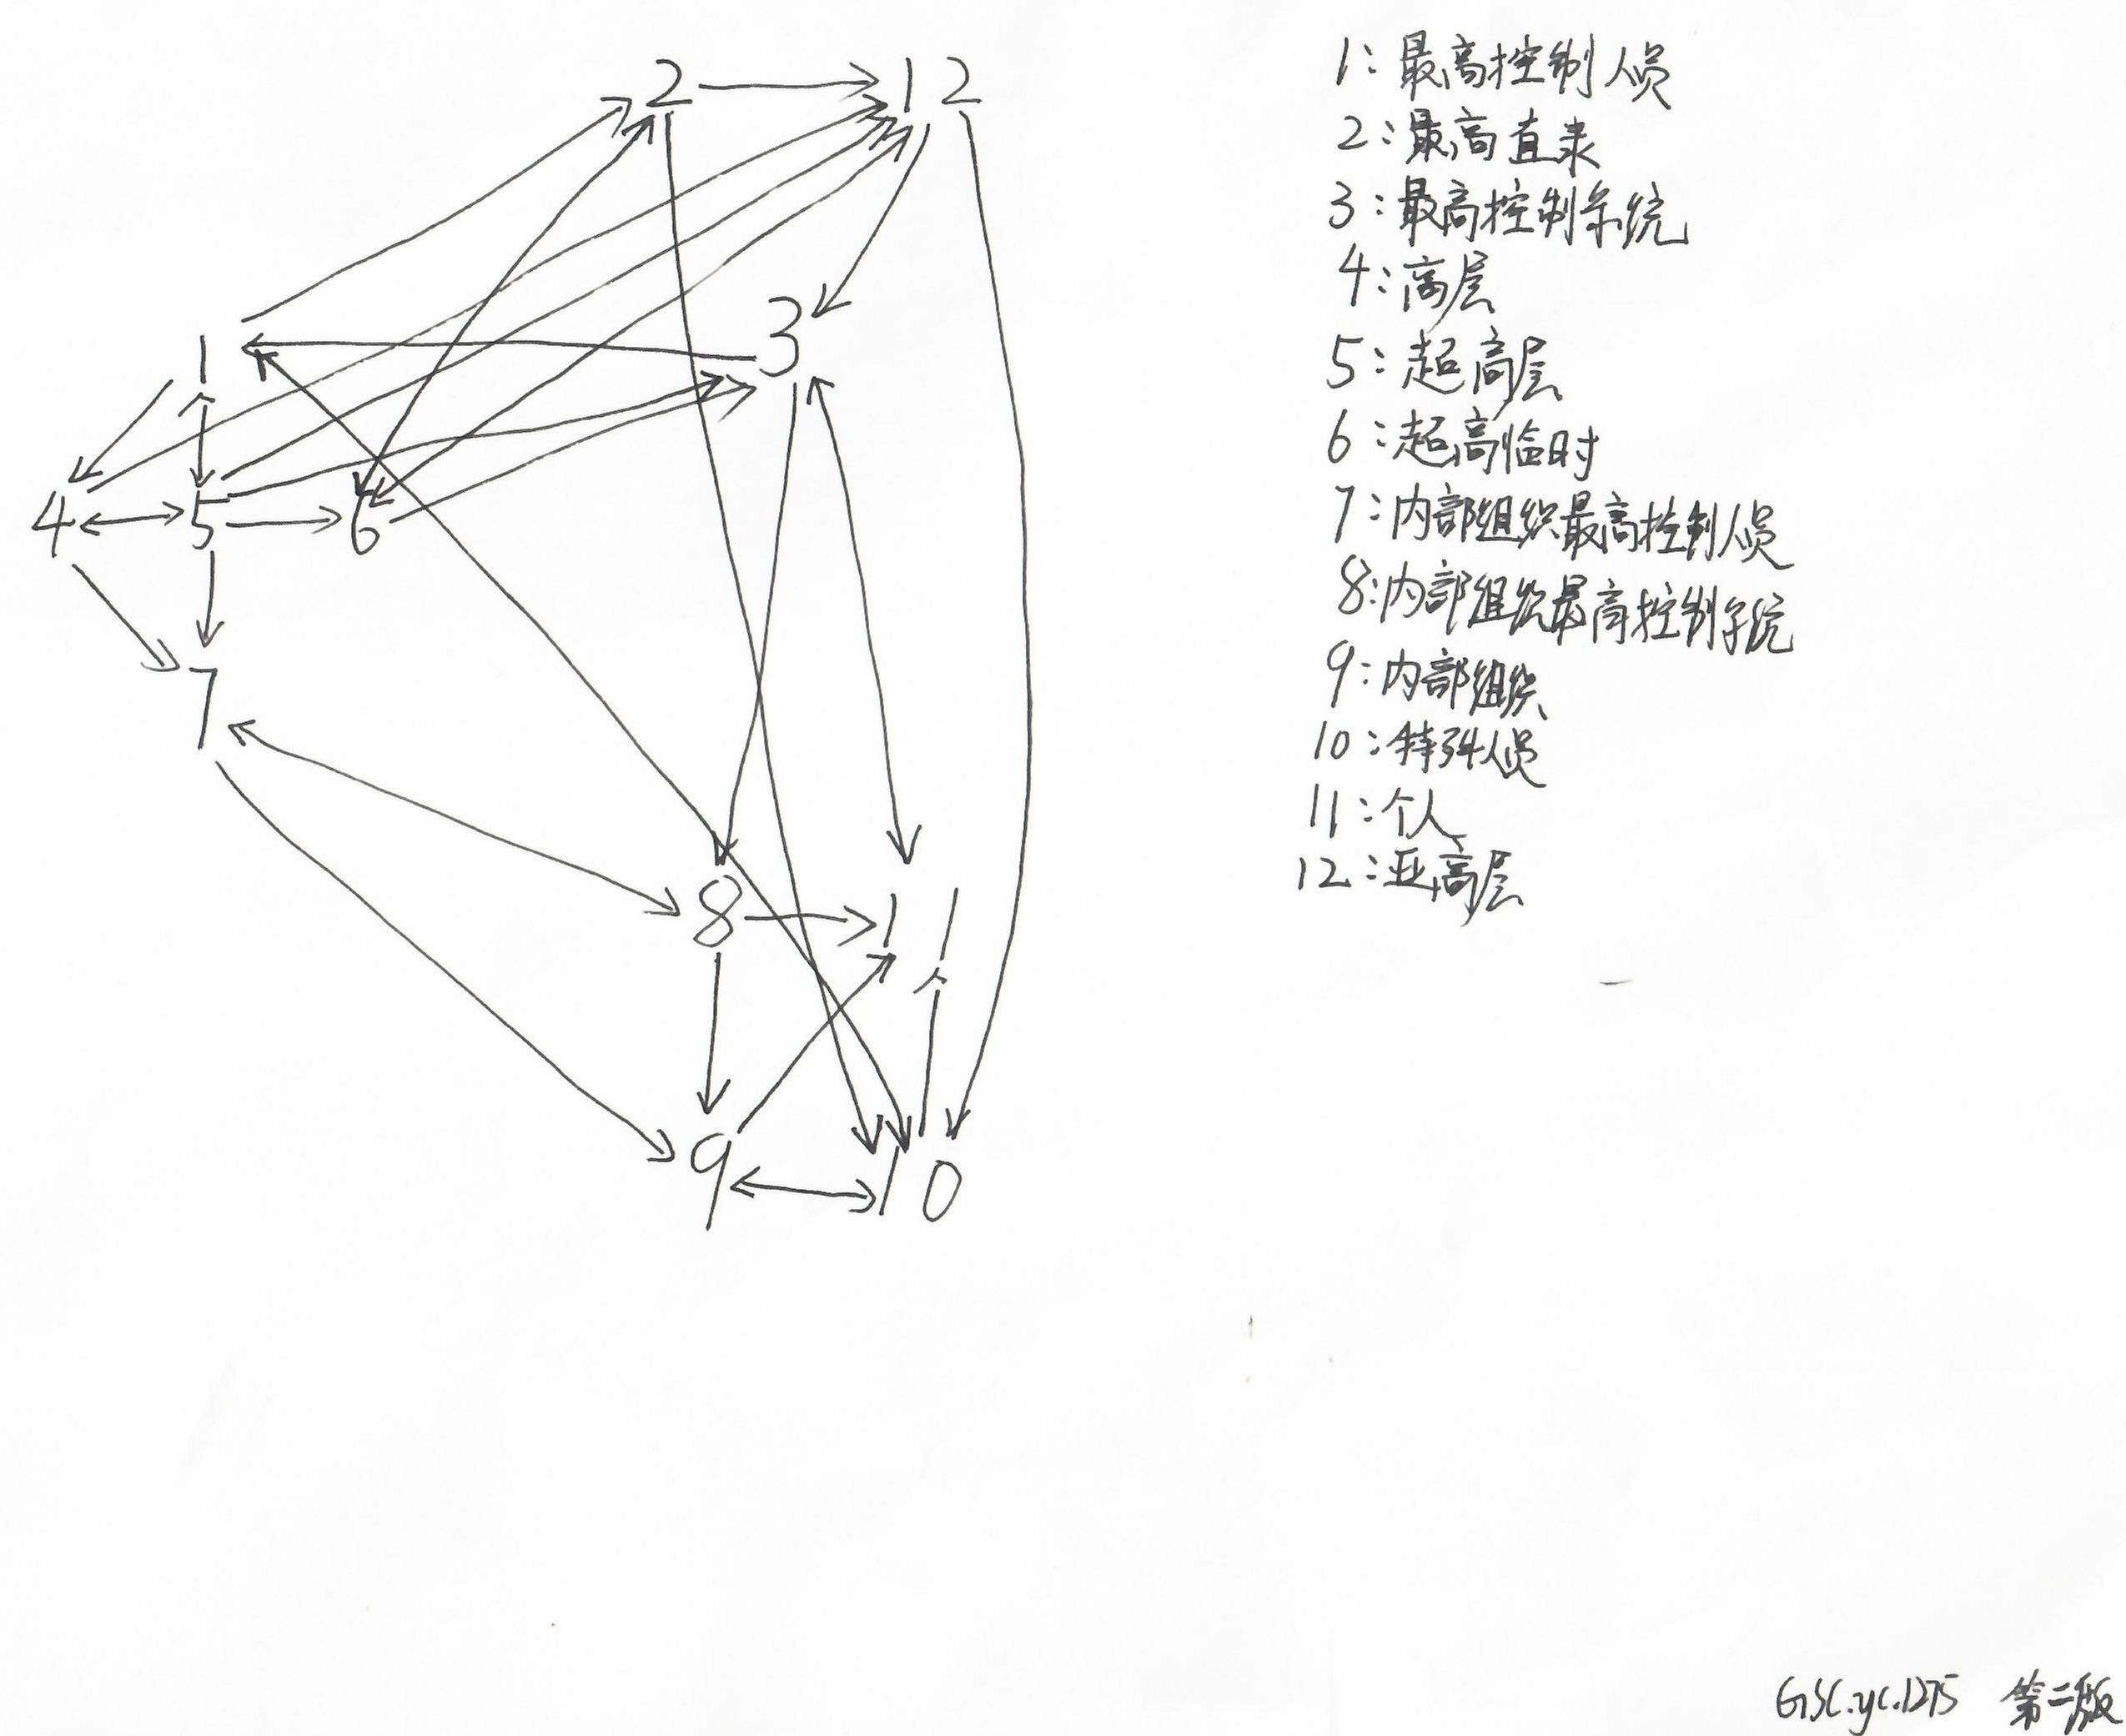 2 12
3
1
4 5 6
7
8 11
9 10
1:最高控制人员
2:最高直隶
3:最高控制系统
4:高层
5:超高层
6:超高临时
7:内部组织最高控制人员
8:内部组织最高控制系统
9:内部组织
10:特殊人员
11:个人
12:亚高层
GSC.yc.1275 第二版